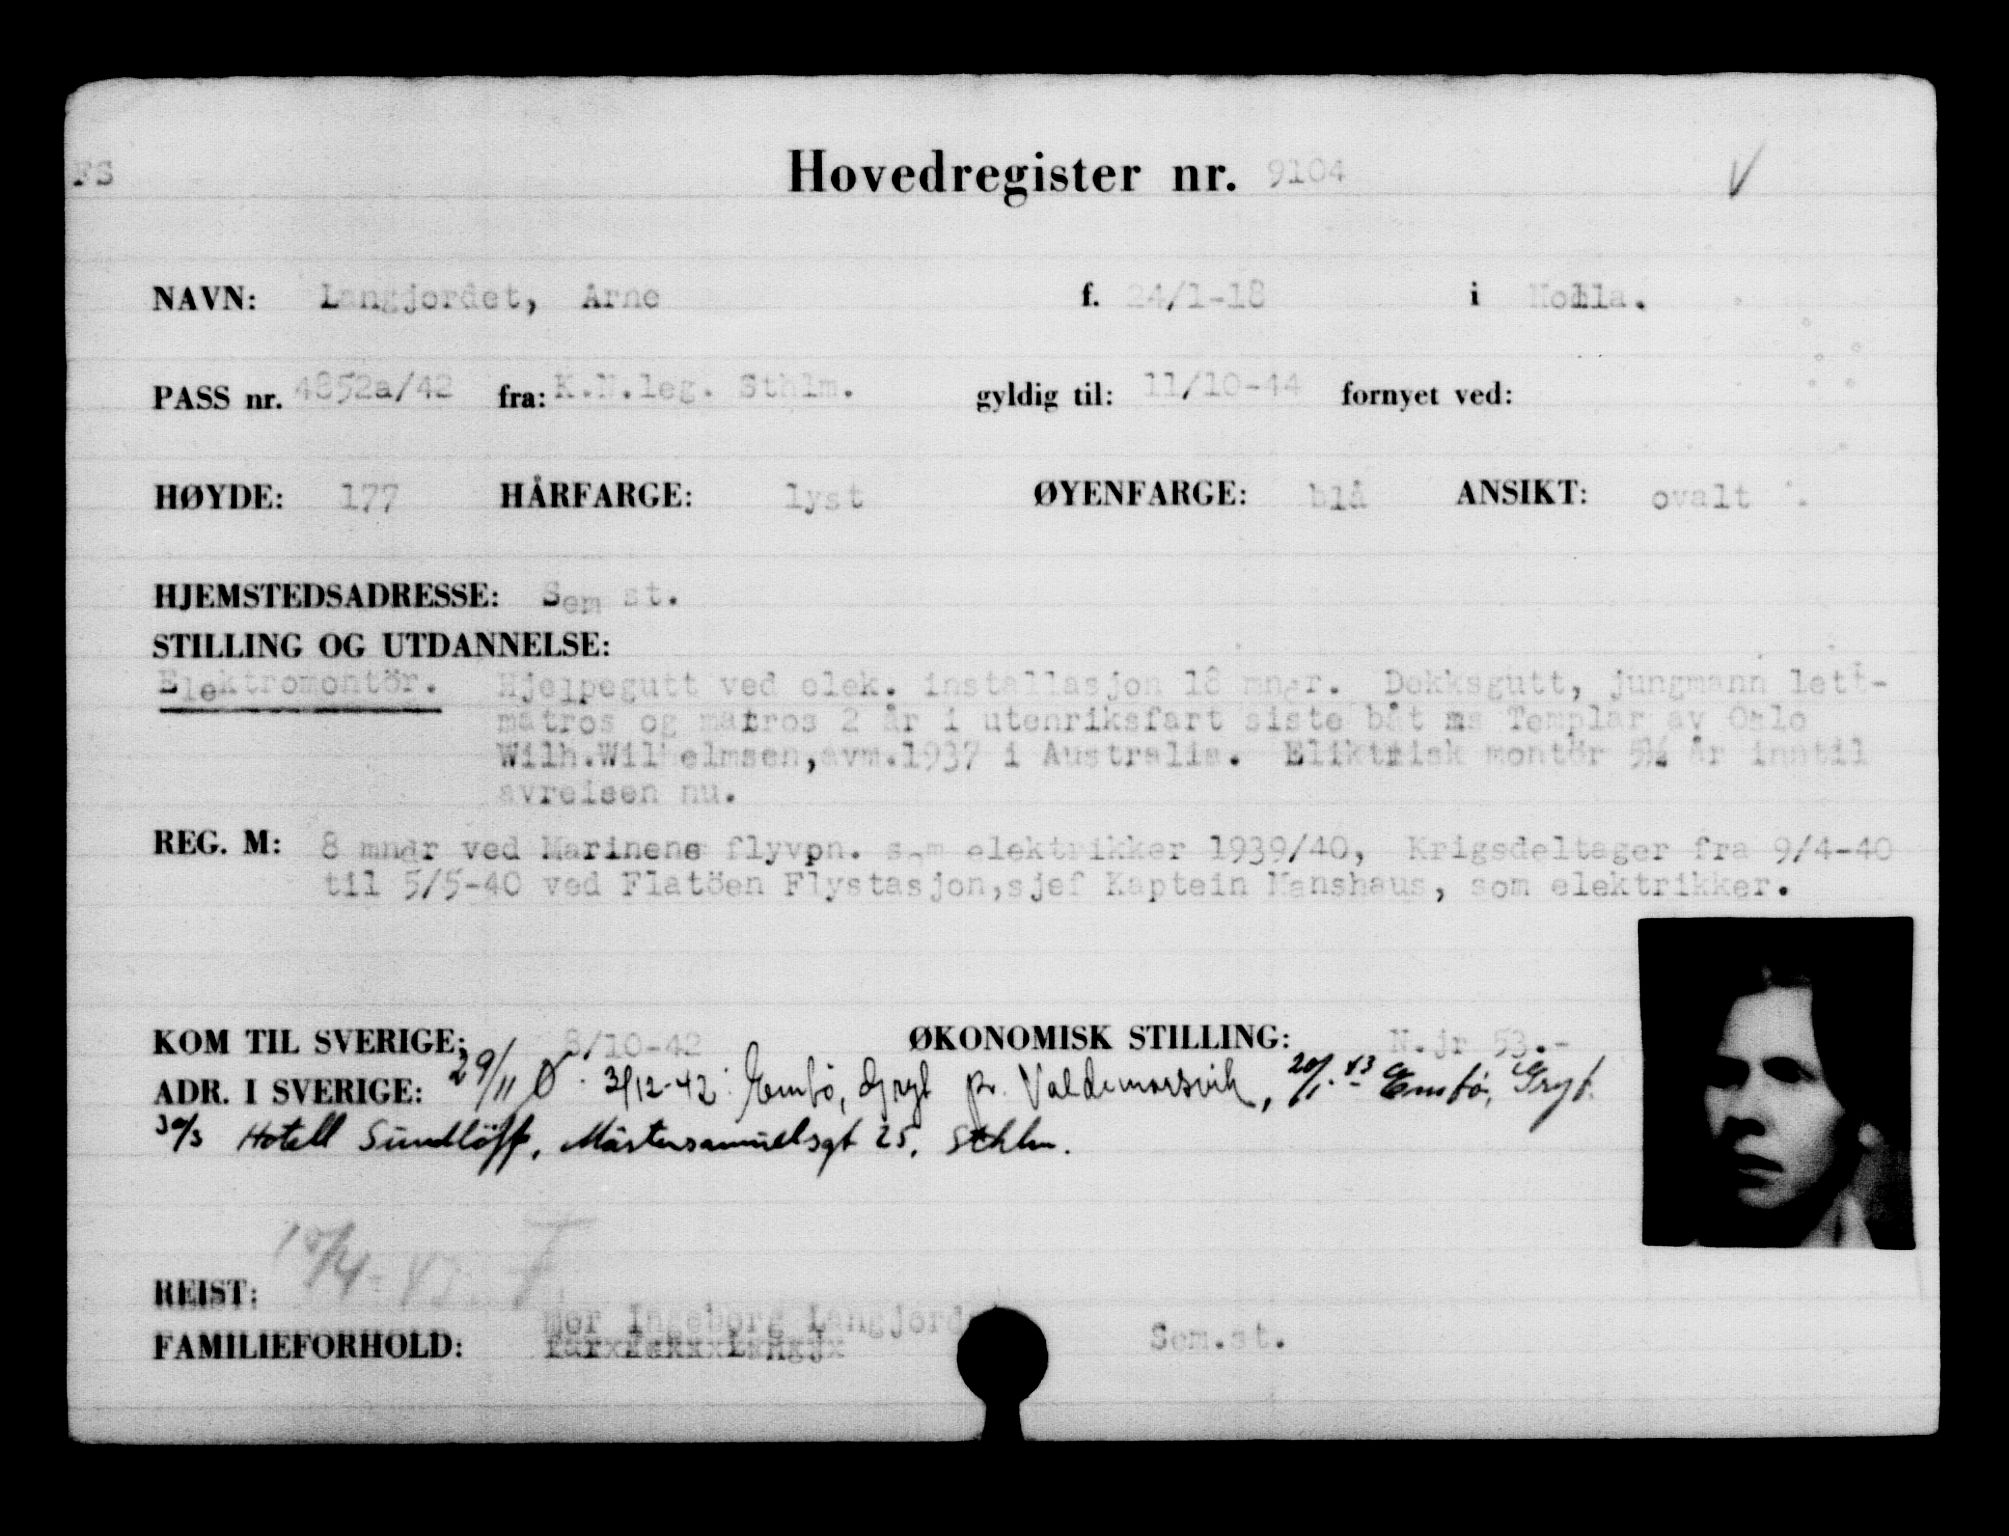 FS
Hovedregister nr. 9104
NAVN: Langjordet, Arne f. 24/1-18 i Holla.
PASS nr. 4852a/42 fra: K.N.leg. Sthlm. gyldig til: 11/10-44 fornyet ved:
HØYDE: 177 HÅRFARGE: lyst ØYENFARGE: blå ANSIKT: ovalt
HJEMSTEDSADRESSE: Sem st.
STILLING OG UTDANNELSE:
Elektromontör. Hjelpegutt ved elek. installasjon 18 mndr. Dekksgutt, jungmann lett-
matros og matros 2 år i utenriksfart siste båt ms Templar av Oslo
Wilh.Wilhelmsen,avm.1937 i Australia. Eliktrisk montör 5½ år inntil
avreisen nu.
REG. M: 8 mndr ved Marinens flyvpn. som elektrikker 1939/40, Krigsdeltager fra 9/4-40
til 5/5-40 ved Flatöen Flystasjon,sjef Kaptein Manshaus, som elektrikker.
KOM TIL SVERIGE: 8/10-42 ØKONOMISK STILLING: N.jr 53.-
ADR. I SVERIGE: 29/11 Ø. 3/12-42: Emtö, Gryt pr. Valdemarsvik, 20/1.43 Emtö, Gryt.
30/3 Hotell Sundlöff, Mästersamuelsgt 25, Sthlm.
REIST: 10/4-43. F
mor Ingeborg Langjorde
FAMILIEFORHOLD: Sem.st.